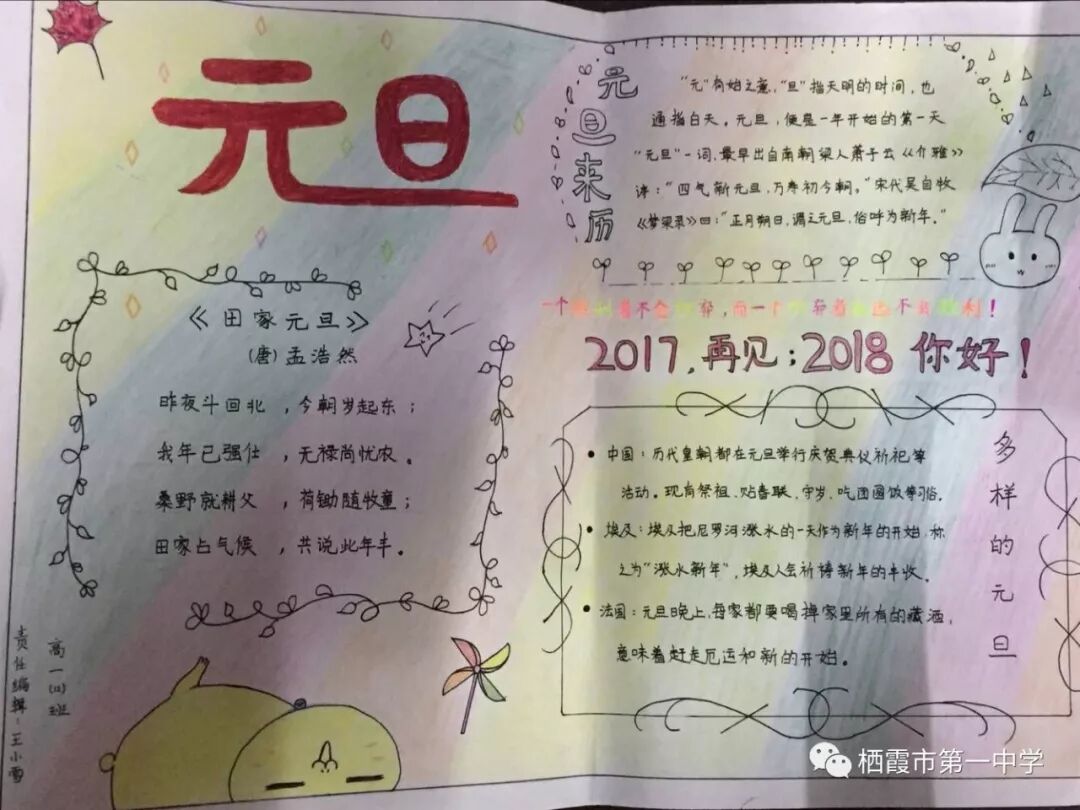 元旦
《田家元旦》
(唐)孟浩然
昨夜斗回北，今朝岁起东；
我年已强仕，无禄尚忧农。
桑野就耕父，荷锄随牧童；
田家占气候，共说此年丰。
高一(12)班
责任编辑：王小雪
元旦来历
"元"有始之意，"旦"指天明的时间，也
通指白天。元旦，便是一年开始的第一天
"元旦"一词，最早出自南朝梁人萧子云《介雅》
诗："四气新元旦，万寿初今朝。"宋代吴自牧
《梦粱录》四："正月朔日，谓之元旦，俗呼为新年。"
一个 着不会 弃，而一个 弃着 不 利！
2017，再见；2018 你好！
多样的元旦
中国：历代皇朝都在元旦举行庆贺典仪祈祀等
活动。现有祭祖、贴春联、守岁、吃团圆饭等习俗。
埃及：埃及把尼罗河涨水的一天作为新年的开始，称
之为"涨水新年"，埃及人会祈祷新年的丰收。
法国：元旦晚上，每家都要喝掉家里所有的藏酒，
意味着赶走厄运和新的开始。
栖霞市第一中学